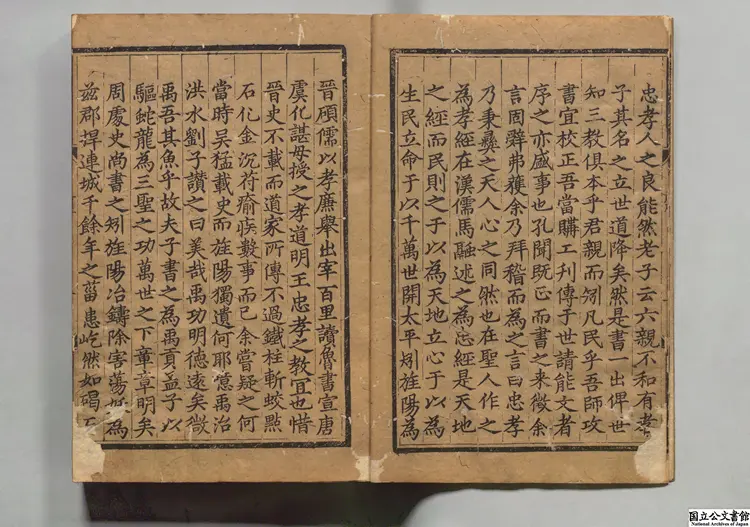 忠孝人之良能然老子云六親不和有孝
子其名之立世道降矣然是書一出俾世
知三教俱本乎君親而矧凡民乎吾師攻
書宜校正吾當購工刋傳于世請能文者
序之亦盛事也孔聞既正而書之来徵余
言固辤弗獲余乃拜稽而為之言曰忠孝
乃秉彝之天人心之同然也在聖人作之
為孝經在漢儒馬融述之為忠經是天地
之經而民則之于以為天地立心于以為
生民立命于以千萬世開太平矧旌陽為
晉碩儒以孝廉舉出宰百里讀魯書宣唐
虞化諶母授之孝道明王忠孝之教宜也惜
晉史不載而道家所傳不過鐵柱斬蛟點
石化金沉符瘉疾數事而已余嘗疑之何
當時吴猛載史而旌陽獨遺何耶意禹治
洪水劉子讚之曰美哉禹功明德遠矣微
禹吾其魚乎故夫子書之為禹貢孟子以
驅蛇龍為三聖之功萬世之下章明矣
周處史尚書之矧旌陽冶鑄除害蕩妖為
兹郡捍連城千餘年之菑患屹然如碣
国立公文書館
National Archives of Japan